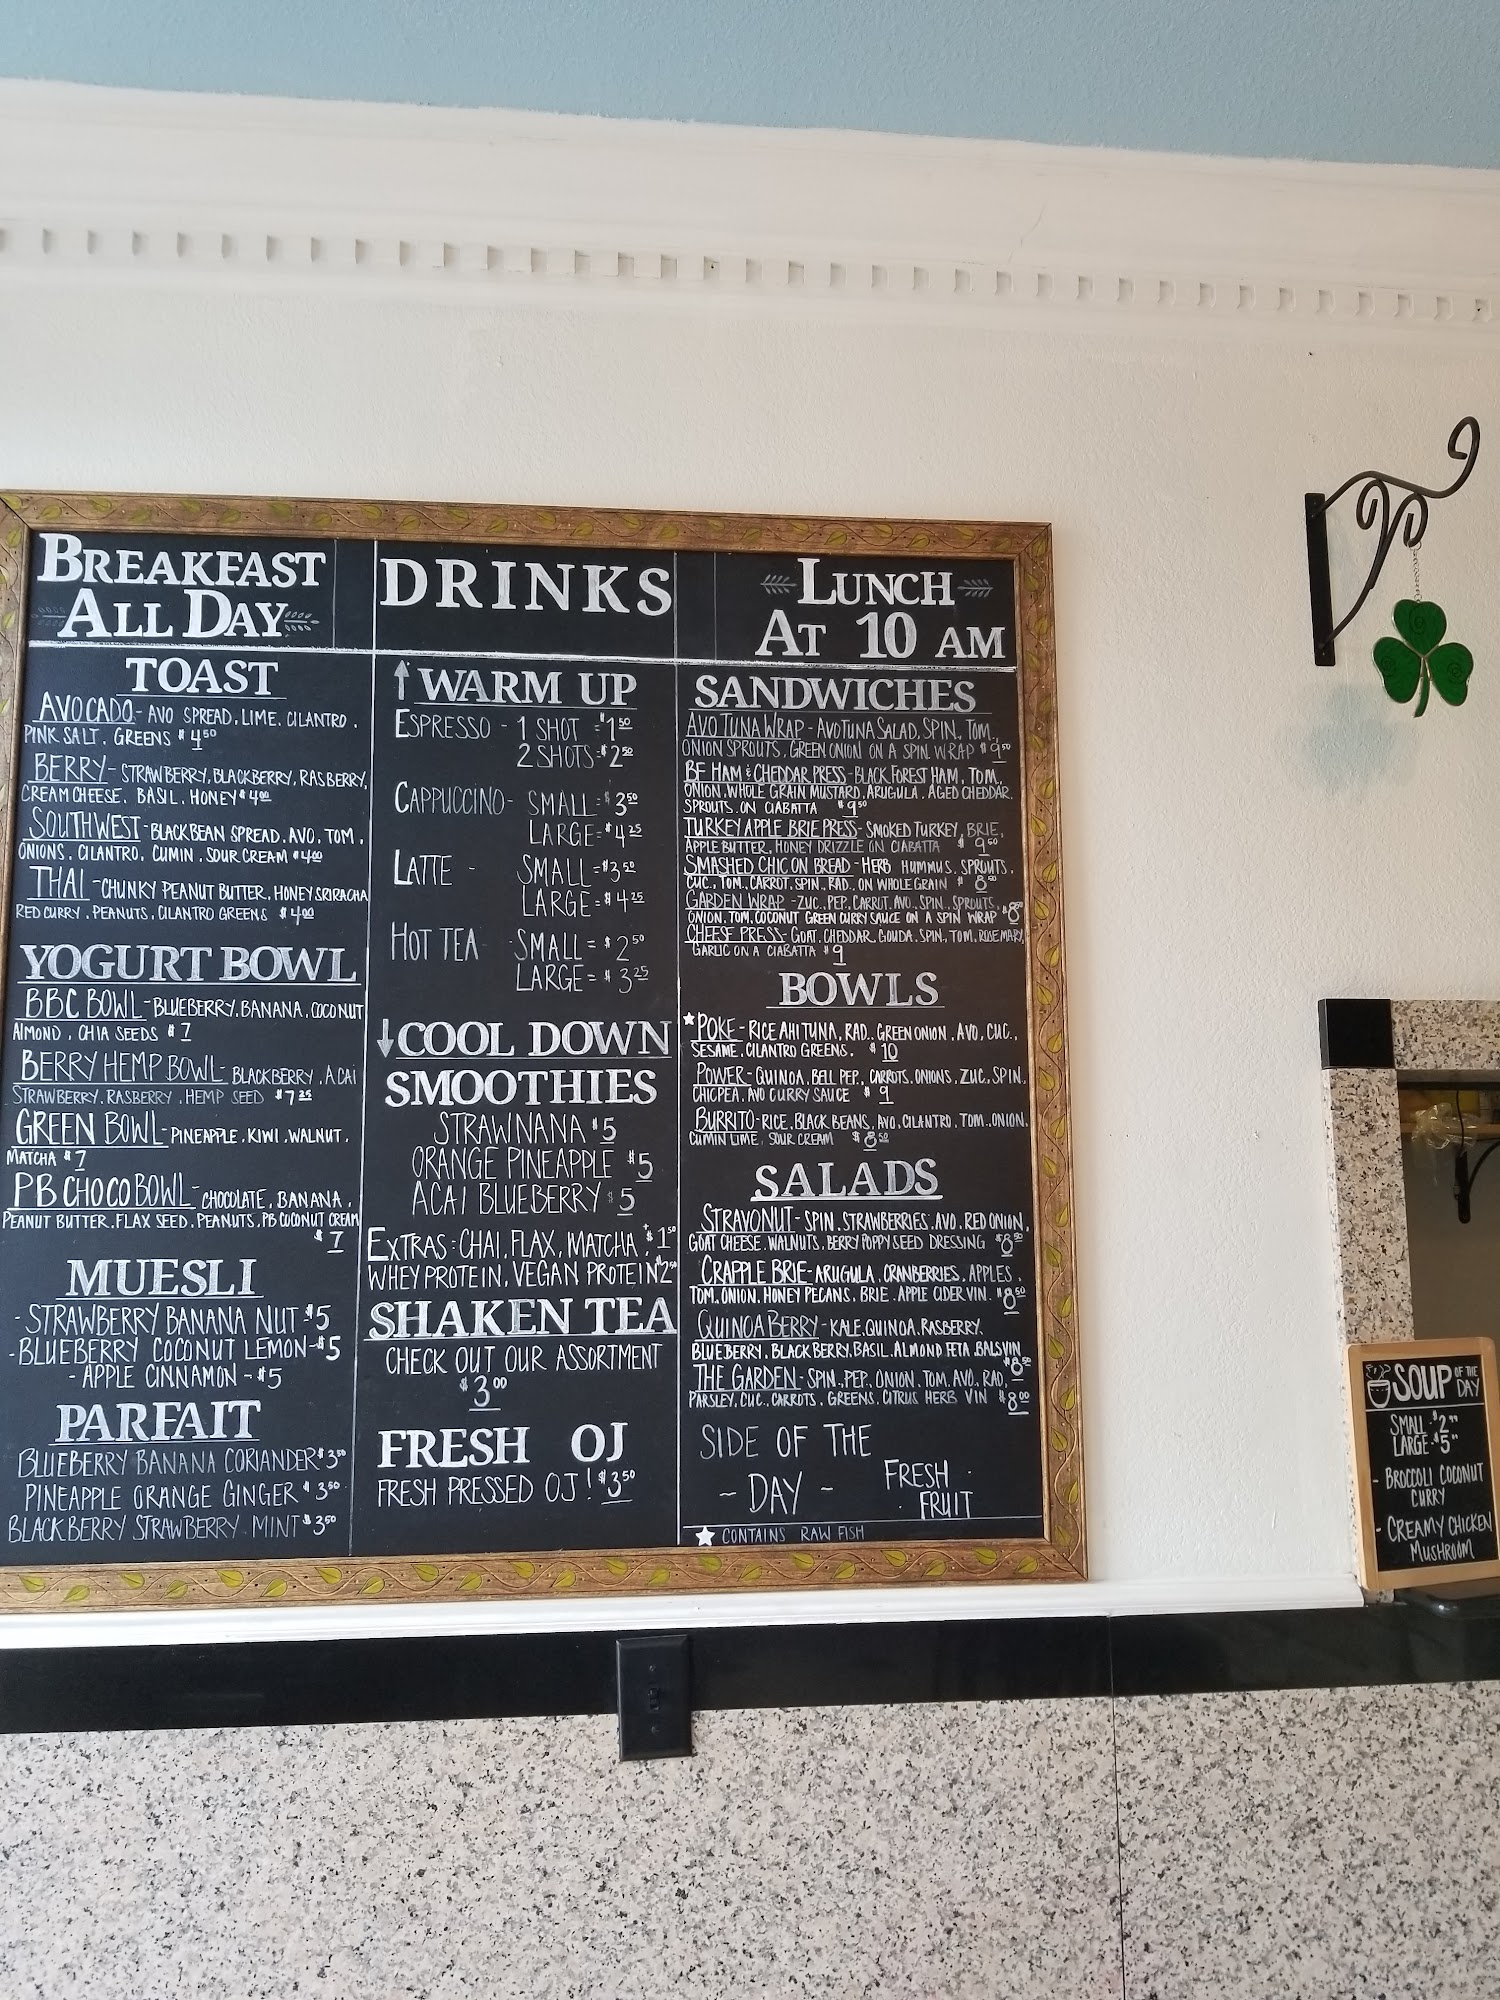 BREAKFAST
ALL DAY
TOAST
AVOCADO - AVO SPREAD. LIME. CILANTRO.
PINK SALT. GREENS $4.50
BERRY - STRAWBERRY, BLACKBERRY, RASBERRY,
CREAM CHEESE. BASIL. HONEY $4.00
SOUTHWEST - BLACK BEAN SPREAD. AVO. TOM.
ONIONS. CILANTRO. CUMIN. SOUR CREAM $4.00
THAI - CHUNKY PEANUT BUTTER, HONEY SRIRACHA
RED CURRY. PEANUTS. CILANTRO GREENS $4.00
YOGURT BOWL
BBC BOWL - BLUEBERRY. BANANA. COCONUT
ALMOND. CHIA SEEDS $7
BERRY HEMP BOWL - BLACKBERRY. ACAI
STRAWBERRY. RASBERRY. HEMP SEED $7.25
GREEN BOWL - PINEAPPLE. KIWI. WALNUT.
MATCHA $7
PB CHOCO BOWL - CHOCOLATE, BANANA,
PEANUT BUTTER. FLAX SEED. PEANUTS. PB COCONUT CREAM
$7
MUESLI
- STRAWBERRY BANANA NUT - $5
- BLUEBERRY COCONUT LEMON - $5
- APPLE CINNAMON - $5
PARFAIT
BLUEBERRY BANANA CORIANDER $3.50
PINEAPPLE ORANGE GINGER $3.50
BLACKBERRY STRAWBERRY MINT $3.50
DRINKS
↑ WARM UP
ESPRESSO - 1 SHOT = $1.50
2 SHOTS = $2.50
CAPPUCCINO - SMALL = $3.50
LARGE = $4.25
LATTE - SMALL = $3.50
LARGE = $4.25
HOT TEA - SMALL = $2.50
LARGE = $3.25
↓ COOL DOWN
SMOOTHIES
STRAWNANA $5
ORANGE PINEAPPLE $5
ACAI BLUEBERRY $5
EXTRAS: CHAI, FLAX, MATCHA + $1.50
WHEY PROTEIN, VEGAN PROTEIN $2.50
SHAKEN TEA
CHECK OUT OUR ASSORTMENT
$3.00
FRESH OJ
FRESH PRESSED OJ! $3.50
LUNCH
AT 10 AM
SANDWICHES
AVO TUNA WRAP - AVOTUNA SALAD, SPIN, TOM,
ONION SPROUTS, GREEN ONION ON A SPIN WRAP $9.50
BF HAM & CHEDDAR PRESS - BLACK FOREST HAM, TOM,
ONION. WHOLE GRAIN MUSTARD. ARUGULA. AGED CHEDDAR.
SPROUTS. ON CIABATTA $9.50
TURKEY APPLE BRIE PRESS - SMOKED TURKEY, BRIE,
APPLE BUTTER, HONEY DRIZZLE ON CIABATTA $9.50
SMASHED CHIC ON BREAD - HERB HUMMUS. SPROUTS.
CUC., TOM., CARROT. SPIN. RAD. ON WHOLE GRAIN $8.50
GARDEN WRAP - ZUC., PEP, CARROT. AVO. SPIN. SPROUTS.
ONION. TOM. COCONUT GREEN CURRY SAUCE ON A SPIN WRAP $8.50
CHEESE PRESS - GOAT. CHEDDAR. GOUDA. SPIN., TOM. ROSEMARY,
GARLIC ON A CIABATTA $9
BOWLS
★ POKE - RICE AHI TUNA, RAD., GREEN ONION. AVO, CUC.,
SESAME. CILANTRO GREENS. $10
POWER - QUINOA, BELL PEP., CARROTS, ONIONS, ZUC., SPIN,
CHICPEA, AVO CURRY SAUCE $9
BURRITO - RICE, BLACK BEANS, AVO, CILANTRO, TOM., ONION.
CUMIN LIME, SOUR CREAM $8.50
SALADS
STRAVONUT - SPIN. STRAWBERRIES. AVO. RED ONION,
GOAT CHEESE. WALNUTS. BERRY POPPY SEED DRESSING $8.50
CRAPPLE BRIE - ARUGULA. CRANBERRIES. APPLES.
TOM. ONION. HONEY PECANS. BRIE. APPLE CIDER VIN. $8.50
QUINOA BERRY - KALE. QUINOA. RASBERRY.
BLUEBERRY. BLACKBERRY. BASIL. ALMOND FETA. BALS VIN. $8.50
THE GARDEN - SPIN., PEP, ONION. TOM. AVO., RAD,
PARSLEY, CUC., CARROTS, GREENS, CITRUS HERB VIN $8.00
SIDE OF THE
- DAY - FRESH
FRUIT
★ CONTAINS RAW FISH
SOUP OF THE DAY
SMALL - $2
LARGE - $5
- BROCCOLI COCONUT
CURRY
- CREAMY CHICKEN
MUSHROOM